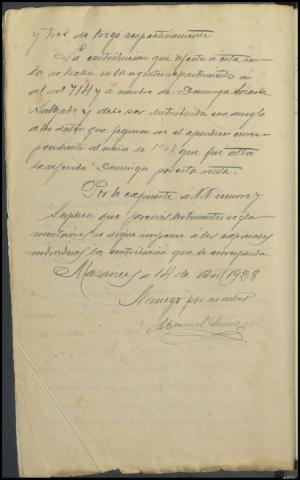 y tres de trigo respectivamente
La contribucion que afecta á esta ren-
ta, se halla en el vigente repartimiento á
al nº 714 y á nombre de Dominga
y debe ser distribuida con arreglo
a los datos que figuran en el apendice corres-
pondiente al año de que fue alta
la referida Dominga por esta renta.
Por lo expuesto á V.
Suplica que previos los tramites regla-
mentarios se digne imponer á los expresados
individuos la contribución que le corresponda
14 de Abril 1928
Arruego por no saber
Manuel